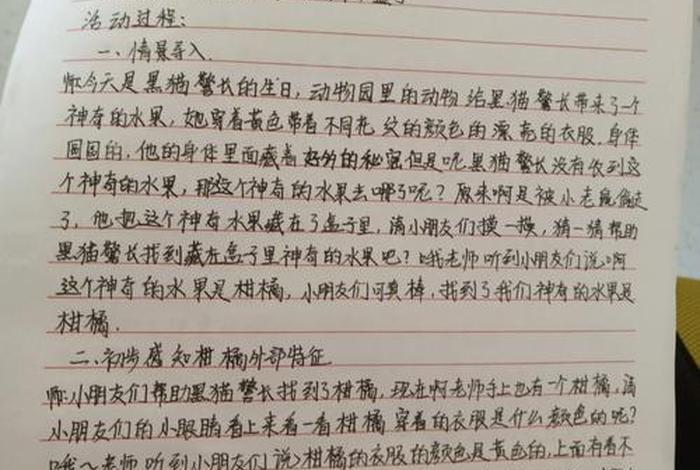 活动过程:
一、情景导入.
师:今天是黑猫警长的生日,动物园里的动物给黑猫警长带来了一个
神奇的水果,她穿着黄色带着不同花纹的颜色的漂亮的衣服.身体
圆圆的,他的身体里面藏着好多的秘密但是呢黑猫警长没有收到这
个神奇的水果,那这个神奇的水果去哪了呢?原来啊是被小老鼠偷走
了,他把这个神奇水果藏在了盒子里,请小朋友们摸一摸,猜一猜帮助
黑猫警长找到藏在盒子里神奇的水果吧?哦老师听到小朋友们说:啊
这个神奇的水果是柑橘,小朋友们可真棒,找到了我们神奇的水果是
柑橘.
二、初步感知柑橘外部特征.
师:小朋友们帮助黑猫警长找到了柑橘,现在啊老师手上也有一个柑橘,请
小朋友们的小眼睛看上来看一看柑橘穿着的衣服是什么颜色的呢?
哦~老师听到小朋友们说柑橘的衣服的颜色是黄色的,上面有着不